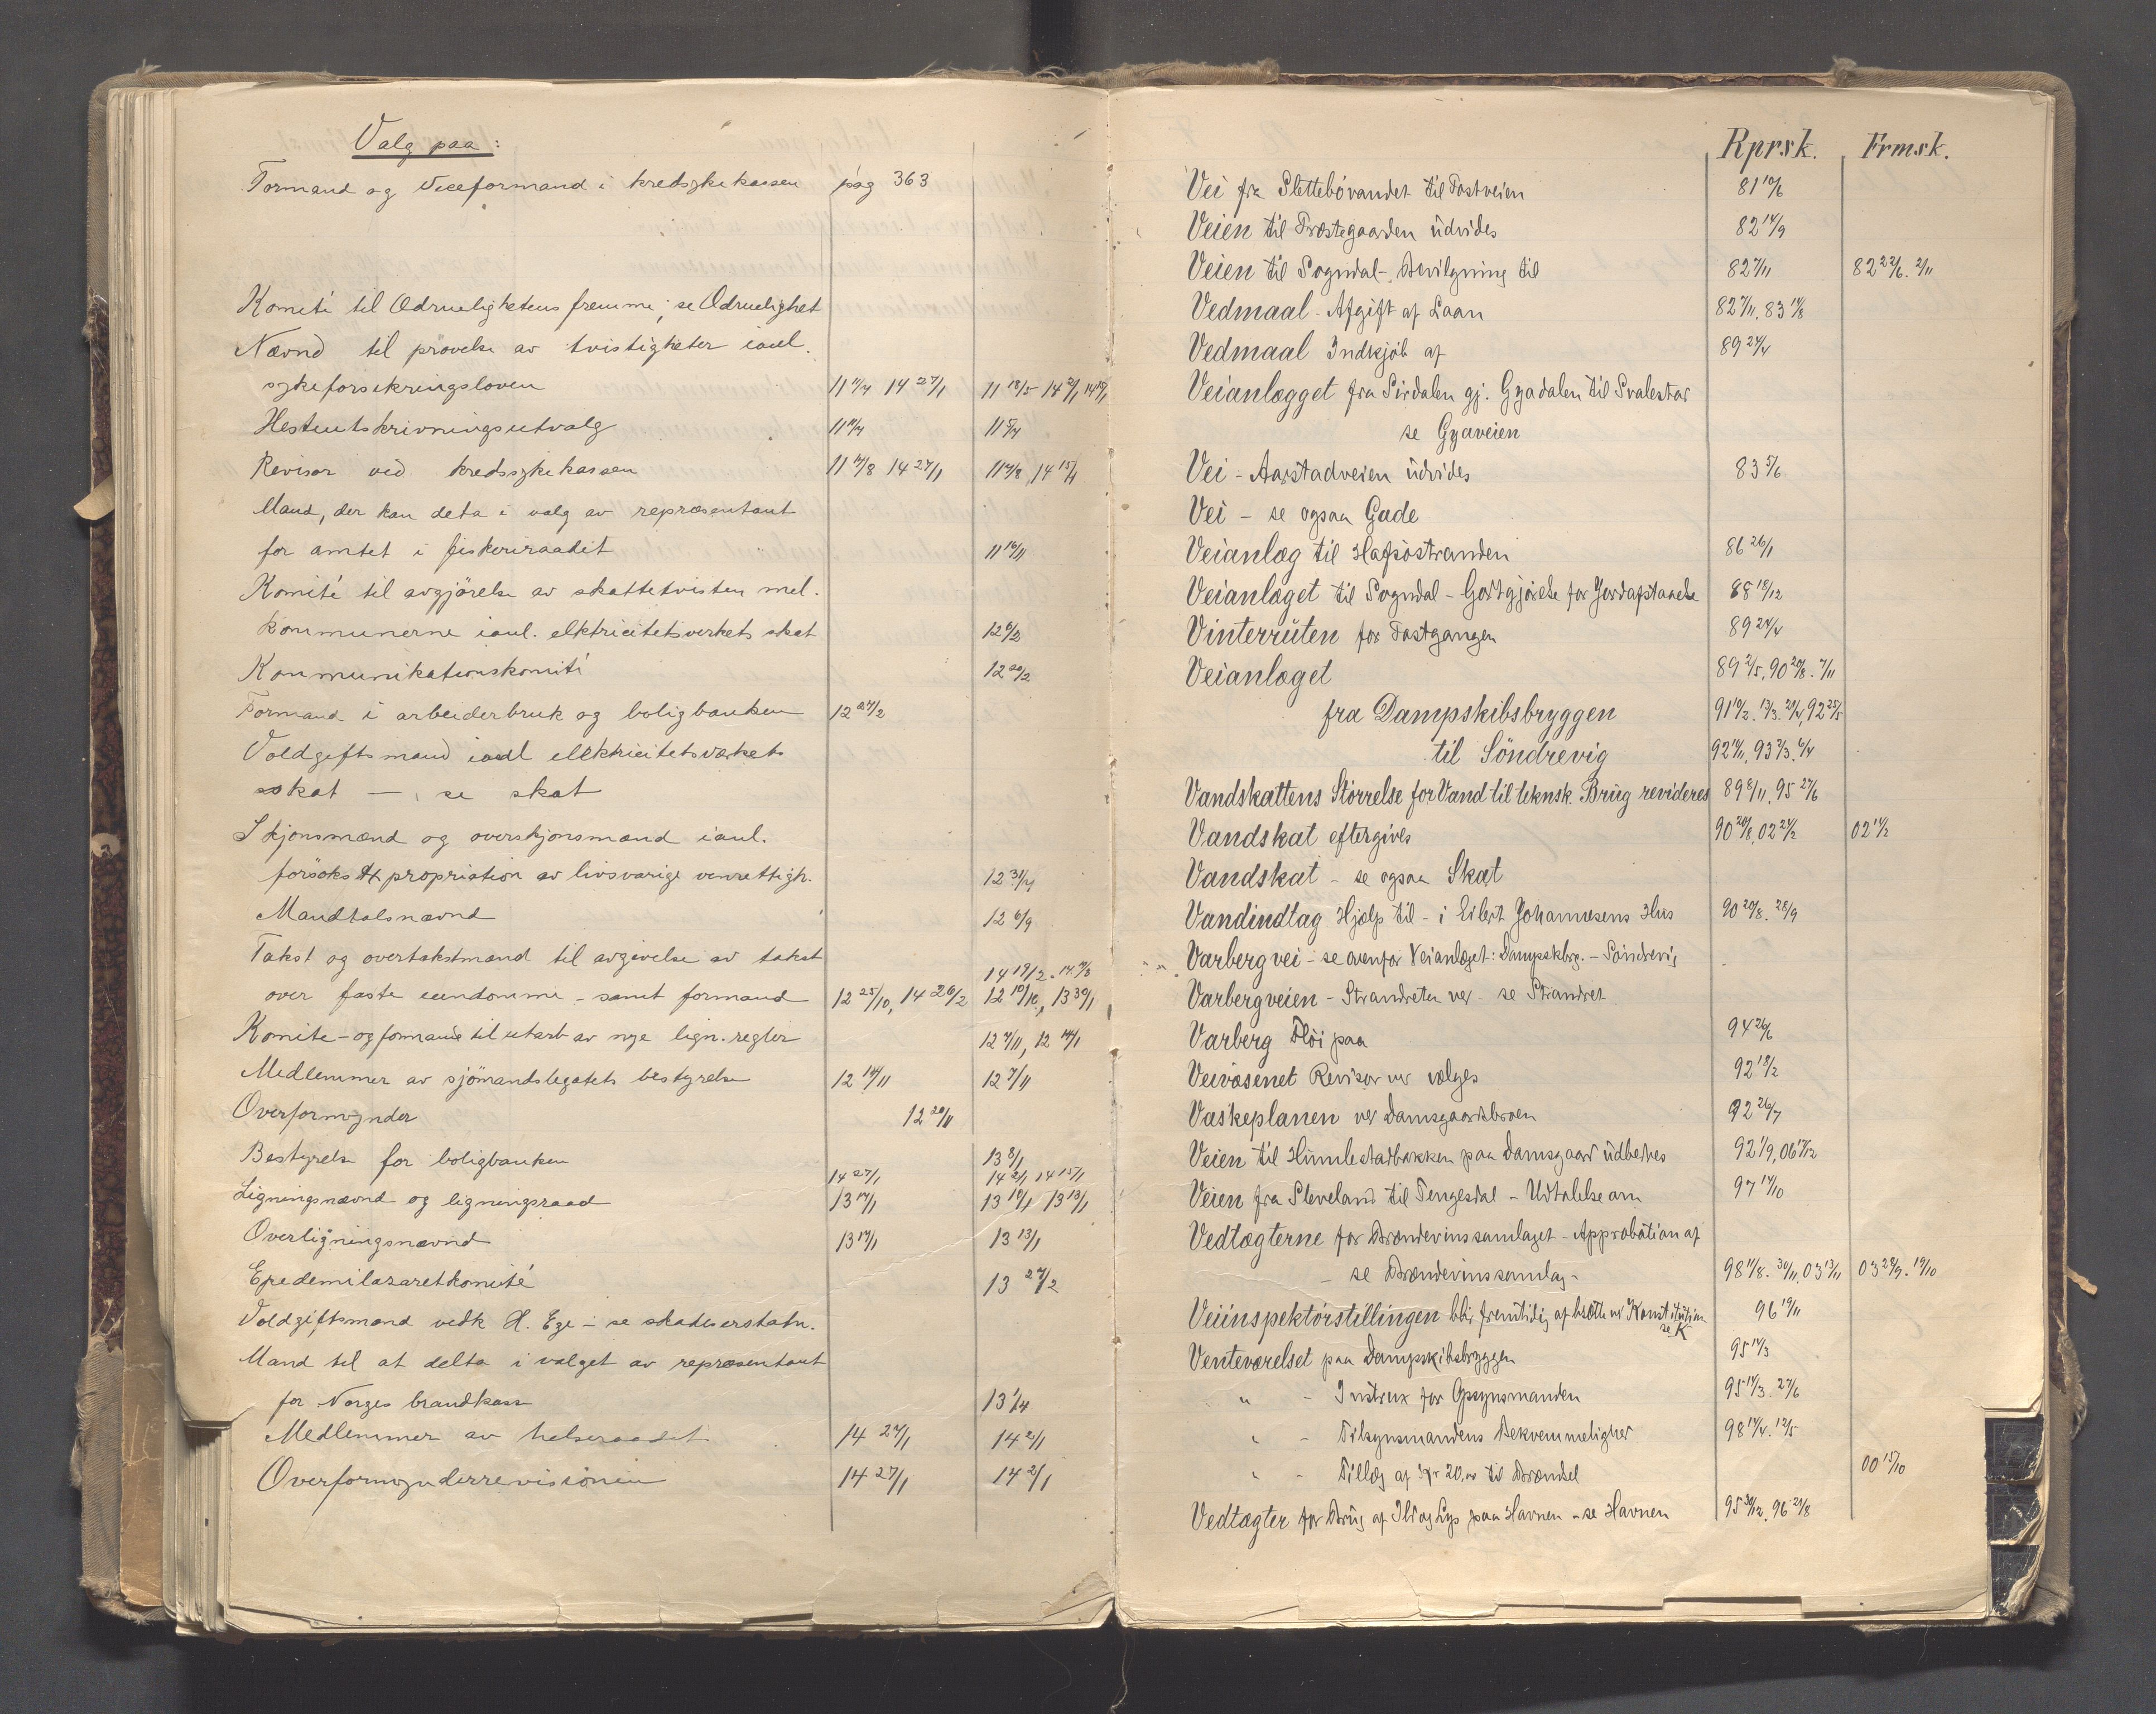 Valg paa:
Formand og Viceformand i kredssykekassen pag 363
Komité til Ædruelighetens fremme, se Ædruelighet
Nævnd til prøvelse av tvistigheter ianl.
sykeforsikringsloven 14 27/1 11 18/5 14 2/1
Hesteutskrivningsutvalg
Revisor ved kredssykekassen 14 27/1
Mand, der kan deta i valg av repræsentant
for amtet i fiskeriraadet 11 16/11
Komité til avgjörelse av skattetvisten mel.
kommunerne ianl. elktricitetsverkets skat 12 6/2
Kommunikationskomité 12 20/2
Formand i arbeiderbruk og boligbanken 12 27/2
Voldgiftsmand ianl elektricitetsværkets
skat — se skat
Skjønsmænd og overskjønsmænd ianl.
forsöks expropriation av livsvarige
Mandtalsnævnd 12 6/9
Takst og overtakstmænd til avgivelse av takst 14 19/2
over faste eiendomme - samt formand 12 25/10, 14 26/2 12 10/10, 13 30/1
Komite - og formand til utarb. av nye lign. regler 12 7/11
Medlemmer av sjömandslegatets bestyrelse 12 14/11 12 7/11
Overformynder 12 20/11
Bestyrelse for boligbanken 13 8/1
14 27/1 14 2/1 14 15/1
Ligningsnævnd og ligningsraad 13 14/1 13 10/1 13 13/1
Overligningsnævnd 13 14/1 13 13/1
Epedemilazaretkomité 13 27/2
Voldgiftsmænd vedk H. Ege - se skadeserstatn.
Mand til at delta i valget av repræsentant
for Norges brandkasse 13 1/4
Medlemmer av helseraadet 14 27/1 14 2/1
Overformynderrevisionen 14 27/1 14 2/1
Rprsk. Frmsk.
Vei fra Slettebövandet til Postveien 81 10/6
Veien til Præstegaarden udvides 82 14/9
Veien til Sogndal - Bevilgning til 82 7/11 82 22/6. 2/11
Vedmaal - Afgift af Laan 82 7/11. 83 14/8
Vedmaal Indkjöb af 89 24/4
Veianlægget fra Sirdalen gj. Gyadalen til Svalestad
se Gyaveien
Vei - Aarstadveien udvides 83 5/6
Vei - se ogsaa Gade
Veianlæg til Hafsöstranden 86 26/1
Veianlæget til Sogndal - Godtgjörelse for Jordafstaaelse 88 18/12
Vinterruten for Postgangen 89 24/4
Veianlæget 89 2/5. 90 20/8. 7/11
fra Dampskibsbryggen 91 10/2. 13/3. 21/4, 92 25/5
til Söndrevig 92 11/11. 93 2/3. 6/4
Vandskattens Störrelse for Vand til teknsk. Brug revideres 89 8/11. 95 27/6
Vandskat eftergives 90 20/8, 02 24/2 02 11/2
Vandskat - se ogsaa Skat
Vandindtag Hjælp til - i Eilert Johannesens Hus 90 20/8. 28/9
Varbergvei - se ovenfor Veianlæget: Dampskbrg. - Söndrevig
Varbergveien - Strandreten ved - se Strandret
Varberg Flöi paa 94 26/6
Veivæsenet Revisor ved vælges 92 18/2
Vaskeplanen ved Damsgaardsbroen 92 26/7
Veien til Humlestadbakken paa Damsgaard udbedres 92 1/9, 06 17/12
Veien fra Sleveland til Tengesdal - Udtalelse om 97 14/10
Vedtægterne for Brændevinssamlaget - Approbation af
- se Brændevinssamlag - 98 11/8. 30/11. 03 13/11 03 28/9. 19/10
Veiinspektörstillingen blir fremtidig af besætte ved Konstitution 96 19/11
se K
Venteværelset paa Dampskibsbryggen 95 14/3
" - Instrux for Opsynsmanden 95 14/3. 27/6
" - Tilsynsmandens Bekvemmeligher 98 14/4. 12/5
" - Tillæg af Kr 20.00 til Brændsel 00 15/10
Vedtægter for Brug af Ild og Lys paa Havnen - se Havnen 95 30/12. 96 21/8